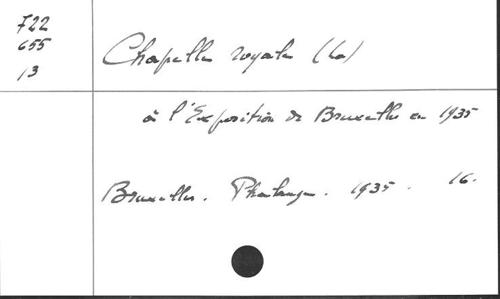 722
655
13
Chapelle royale (La)
à l'Exposition de Bruxelles en 1935
Bruxelles. Phalange. 1935. 16.